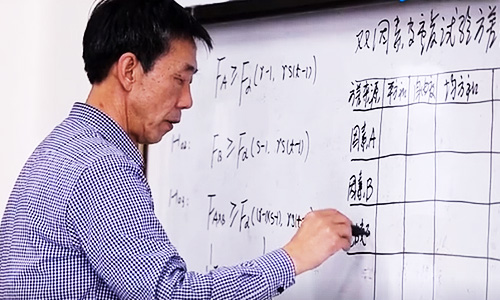 双因素等重复试验方差
F_A ≥ F_α(r-1, rs(t-1))
H₀₂: F_B ≥ F_α(s-1, rs(t-1))
H₀₃: F_{A×B} ≥ F_α((r-1)(s-1), rs(t-1))
方差来源 平方和 自由度 均方和
因素A
因素B